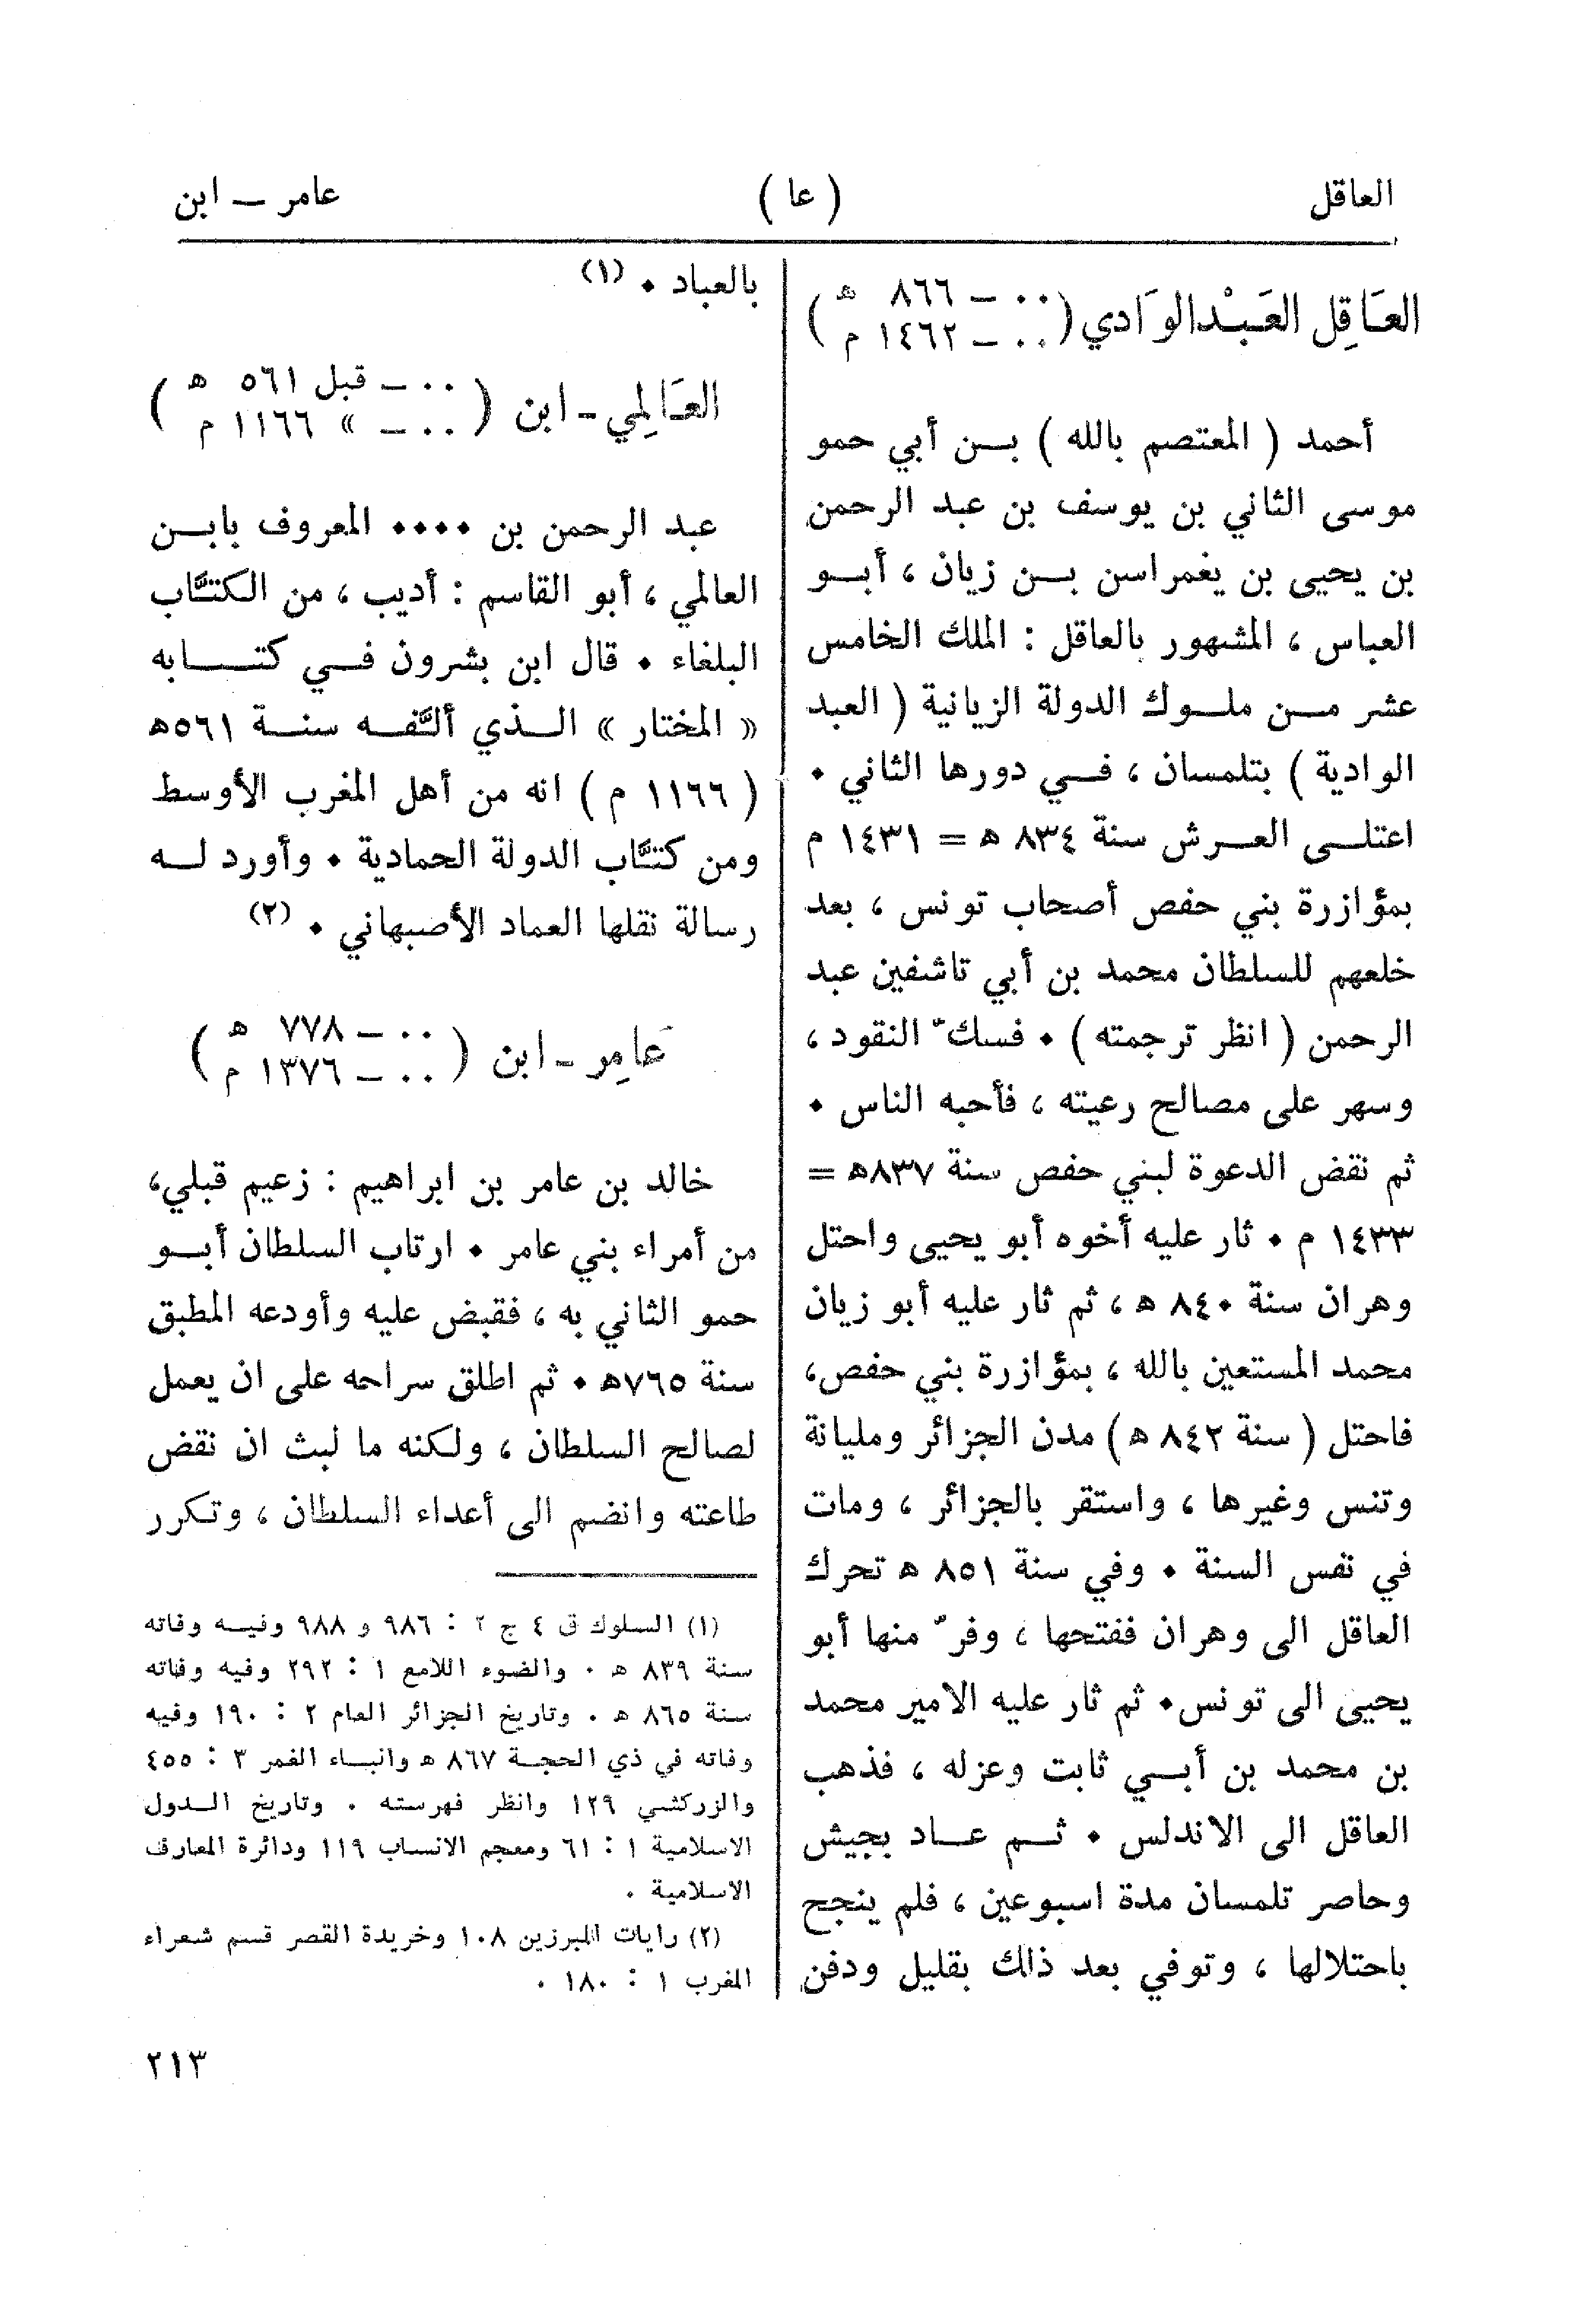 العاقل ( عا ) عامر — ابن
العَاقِل العَبْدالوَادي ( ٠٠ — ٨٦٦ هـ
٠٠ — ١٤٦٢ م )
أحمد ( المعتصم بالله ) بن أبي حمو
موسى الثاني بن يوسف بن عبد الرحمن
بن يحيى بن يغمراسن بن زيان ، أبو
العباس ، المشهور بالعاقل : الملك الخامس
عشر من ملوك الدولة الزيانية ( العبد
الوادية ) بتلمسان ، في دورها الثاني ٠
اعتلى العرش سنة ٨٣٤ هـ = ١٤٣١ م
بمؤازرة بني حفص أصحاب تونس ، بعد
خلعهم للسلطان محمد بن أبي تاشفين عبد
الرحمن ( انظر ترجمته ) ٠ فسكّ النقود ،
وسهر على مصالح رعيته ، فأحبه الناس ٠
ثم نقض الدعوة لبني حفص سنة ٨٣٧هـ =
١٤٣٣ م ٠ ثار عليه أخوه أبو يحيى واحتل
وهران سنة ٨٤٠ هـ ، ثم ثار عليه أبو زيان
محمد المستعين بالله ، بمؤازرة بني حفص،
فاحتل ( سنة ٨٤٢ هـ ) مدن الجزائر ومليانة
وتنس وغيرها ، واستقر بالجزائر ، ومات
في نفس السنة ٠ وفي سنة ٨٥١ هـ تحرك
العاقل الى وهران ففتحها ، وفرّ منها أبو
يحيى الى تونس٠ ثم ثار عليه الامير محمد
بن محمد بن أبي ثابت وعزله ، فذهب
العاقل الى الاندلس ٠ ثم عاد بجيش
وحاصر تلمسان مدة اسبوعين ، فلم ينجح
باحتلالها ، وتوفي بعد ذلك بقليل ودفن
بالعباد ٠ (١)
العَالِمي - ابن ( ٠٠ — قبل ٥٦١ هـ
٠٠ — » ١١٦٦ م )
عبد الرحمن بن ٠٠٠٠ المعروف بابن
العالمي ، أبو القاسم : أديب ، من الكتَّاب
البلغاء ٠ قال ابن بشرون في كتابه
« المختار » الذي ألَّفه سنة ٥٦١هـ
( ١١٦٦ م ) انه من أهل المغرب الأوسط
ومن كتَّاب الدولة الحمادية ٠ وأورد له
رسالة نقلها العماد الأصبهاني ٠ (٢)
عَامِر - ابن ( ٠٠ — ٧٧٨ هـ
٠٠ — ١٣٧٦ م )
خالد بن عامر بن ابراهيم : زعيم قبلي،
من أمراء بني عامر ٠ ارتاب السلطان أبو
حمو الثاني به ، فقبض عليه وأودعه المطبق
سنة ٧٦٥هـ ٠ ثم اطلق سراحه على ان يعمل
لصالح السلطان ، ولكنه ما لبث ان نقض
طاعته وانضم الى أعداء السلطان ، وتكرر
(١) السلوك ق ٤ ج ٢ : ٩٨٦ و ٩٨٨ وفيه وفاته
سنة ٨٣٩ هـ ٠ والضوء اللامع ١ : ٢٩٢ وفيه وفاته
سنة ٨٦٥ هـ ٠ وتاريخ الجزائر العام ٢ : ١٩٠ وفيه
وفاته في ذي الحجة ٨٦٧ هـ وانباء الغمر ٣ : ٤٥٥
والزركشي ١٢٩ وانظر فهرسته ٠ وتاريخ الدول
الاسلامية ١ : ٦١ ومعجم الانساب ١١٩ ودائرة المعارف
الاسلامية ٠
(٢) رايات المبرزين ١٠٨ وخريدة القصر قسم شعراء
المغرب ١ : ١٨٠ ٠
٢١٣